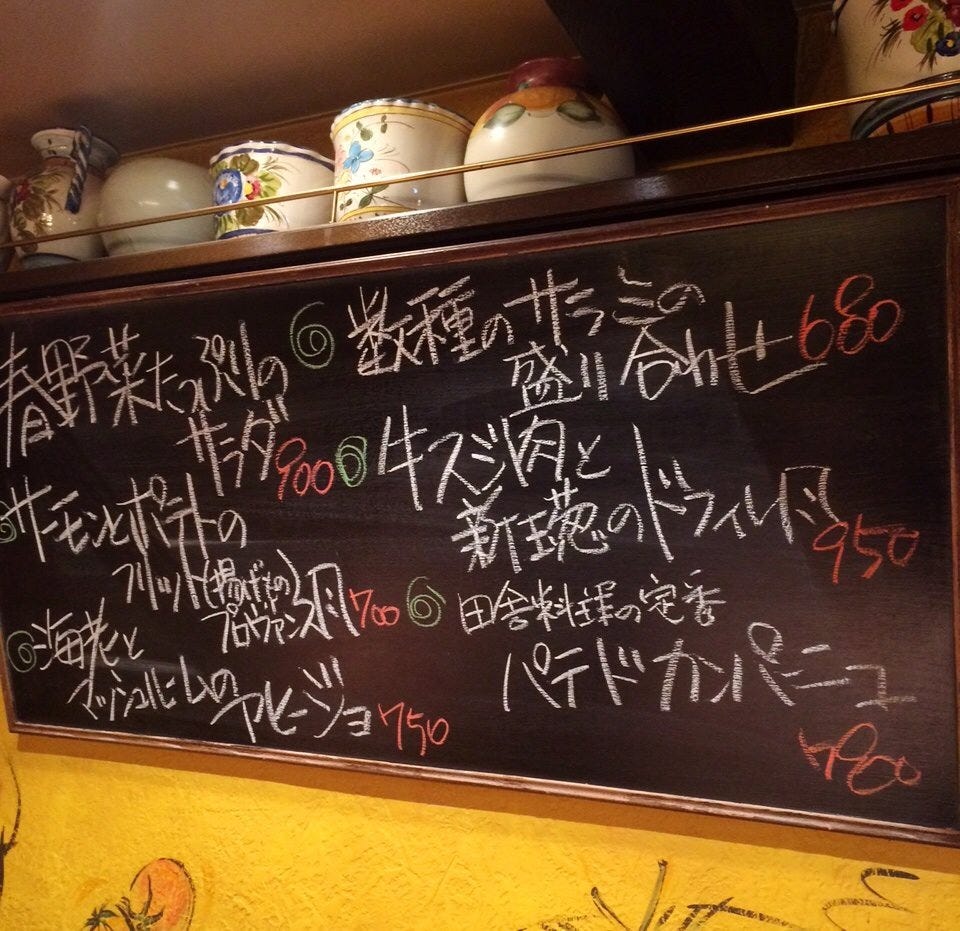 春野菜たっぷりの
サラダ 900
サーモンとポテトの
フリット(揚げもの)
プロヴァンス風 700
海老と
マッシュルームの
アヒージョ 750
数種のサラミの
盛り合わせ 680
牛スジ肉と
新玉葱のドフィル風
950
田舎料理の定番
パテドカンパーニュ